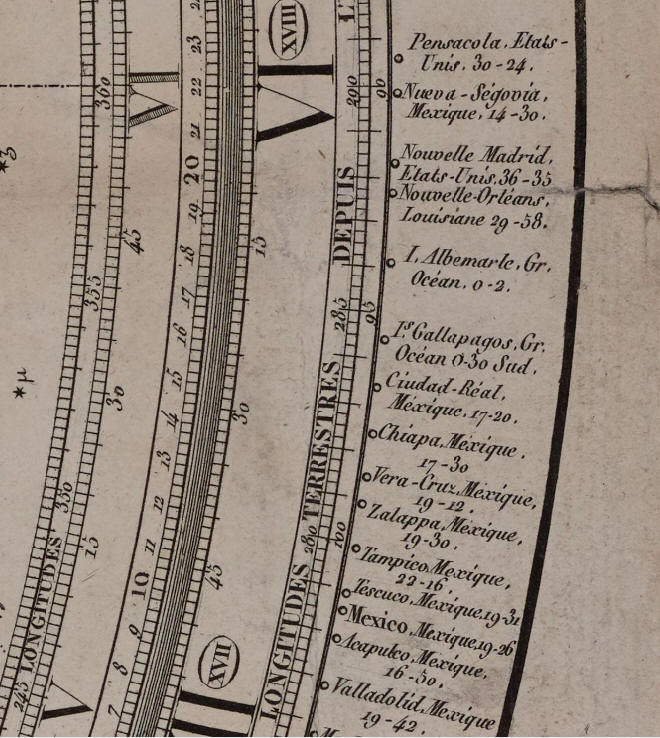 Pensacola, Etats-
Unis. 30-24.
Nueva-Ségovia,
Mexique, 14-30.
Nouvelle Madrid,
Etats-Unis, 36-35
Nouvelle-Orléans,
Louisiane 29-58.
I. Albemarle, Gr.
Océan. 0-2.
Is. Gallapagos, Gr.
Océan 0-30 Sud.
Ciudad-Réal,
Méxique, 17-20.
Chiapa, Méxique,
17-30
Vera-Cruz, Méxique,
19-12.
Zalappa, Méxique,
19-30.
Tampico Mexique,
22-16
Tescuco, Mexique, 19-31
Mexico, Mexique, 19-26
Acapulco, Mexique,
16-50.
Valladolid, Mexique
19-42.
LONGITUDES TERRESTRES DEPUIS
280
285
290
90
95
100
XVIII
XVII
15
30
45
23
22
21
20
19
18
17
16
15
14
13
12
11
10
9
8
7
360
355
350
345
45
30
15
LONGITUDES
*μ